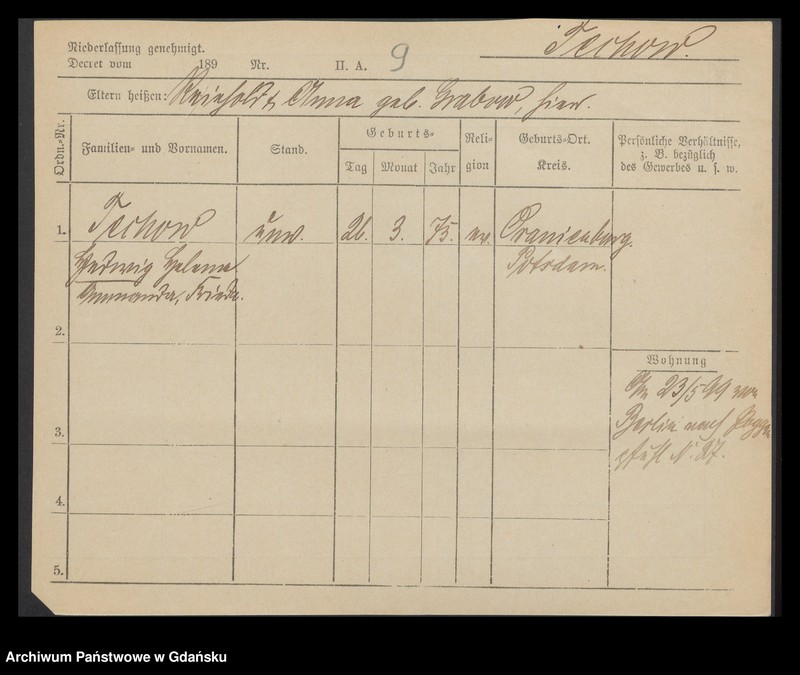 Niederlassung genehmigt.
Decret vom 189 Nr. II. A. 9
Techow.
Eltern heißen: Reinhold & Anna geb. Grabow, hier.
Ordn.-Nr.
Familien- und Vornamen.
Stand.
Geburts-
Tag Monat Jahr
Reli-
gion
Geburts-Ort.
Kreis.
Persönliche Verhältnisse,
z. B. bezüglich
des Gewerbes u. s. w.
1. Techow unv. 26. 3. 75. ev. Oranienburg.
Hedwig Helene Potsdam.
Ammanda, Frieda.
2.
Wohnung
Am 23/5 99 von
3. Berlin nach Poggen
pfuhl N. 27.
4.
5.
Archiwum Państwowe w Gdańsku